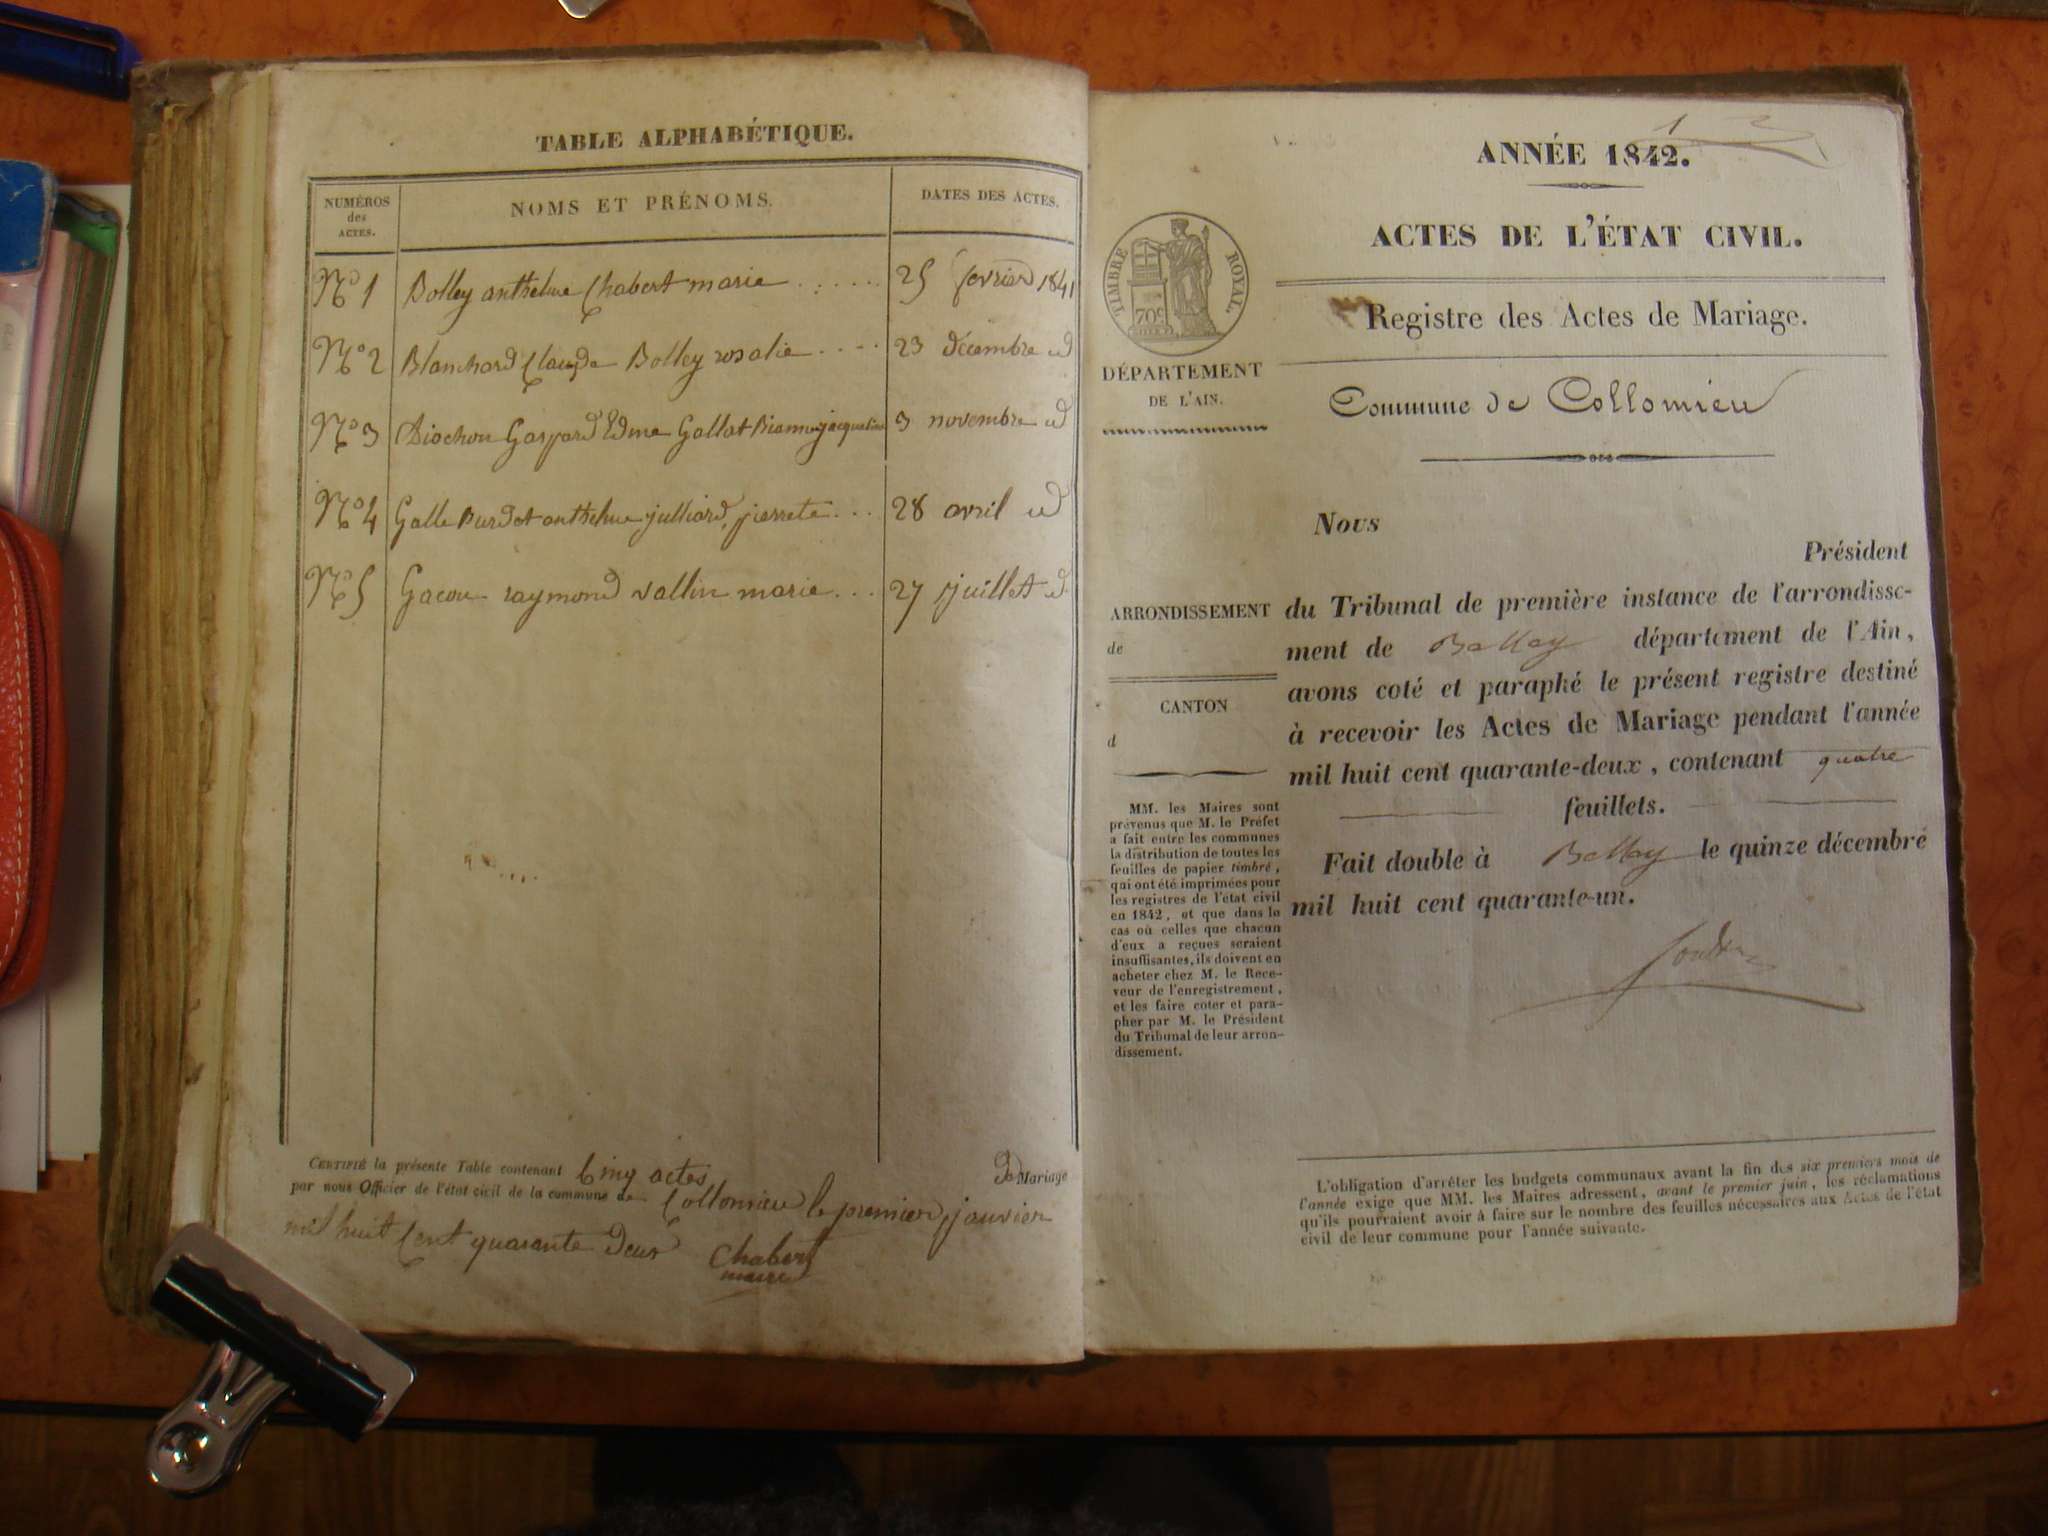 TABLE ALPHABÉTIQUE.
NUMÉROS des ACTES. NOMS ET PRÉNOMS. DATES DES ACTES.
No 1 Bolley anthelme Chabert marie ...... 25 fevrier 1841
No 2 Blanchard Claude Bolley rosalie .... 23 décembre id
No 3 Diochon Gaspard Edme Gallat jacqueline 3 novembre id
No 4 Galle Burdet anthelme julliard pierrete ... 28 avril id
No 5 Gacon raymond vallin marie ... 27 juillet id
CERTIFIÉ la présente Table contenant Cinq actes De Mariage
par nous Officier de l'état civil de la commune de Collomieu le premier janvier
mil huit Cent quarante Deux Chabert
maire
1
ANNÉE 1842.
ACTES DE L'ÉTAT CIVIL.
TIMBRE ROYAL.
70c
Registre des Actes de Mariage.
DÉPARTEMENT
DE L'AIN.
Commune de Collomieu
ARRONDISSEMENT
de
CANTON
d
MM. les Maires sont
prévenus que M. le Préfet
a fait entre les communes
la distribution de toutes les
feuilles de papier timbré,
qui ont été imprimées pour
les registres de l'état civil
en 1842, et que dans le
cas où celles que chacun
d'eux a reçues seraient
insuffisantes, ils doivent en
acheter chez M. le Rece-
veur de l'enregistrement,
et les faire coter et para-
pher par M. le Président
du Tribunal de leur arron-
dissement.
Nous
Président
du Tribunal de première instance de l'arrondisse-
ment de Belley département de l'Ain,
avons coté et paraphé le présent registre destiné
à recevoir les Actes de Mariage pendant l'année
mil huit cent quarante-deux, contenant quatre
feuillets.
Fait double à Belley le quinze décembre
mil huit cent quarante-un.
L'obligation d'arrêter les budgets communaux avant la fin des six premiers mois de
l'année exige que MM. les Maires adressent, avant le premier juin, les réclamations
qu'ils pourraient avoir à faire sur le nombre des feuilles nécessaires aux Actes de l'état
civil de leur commune pour l'année suivante.